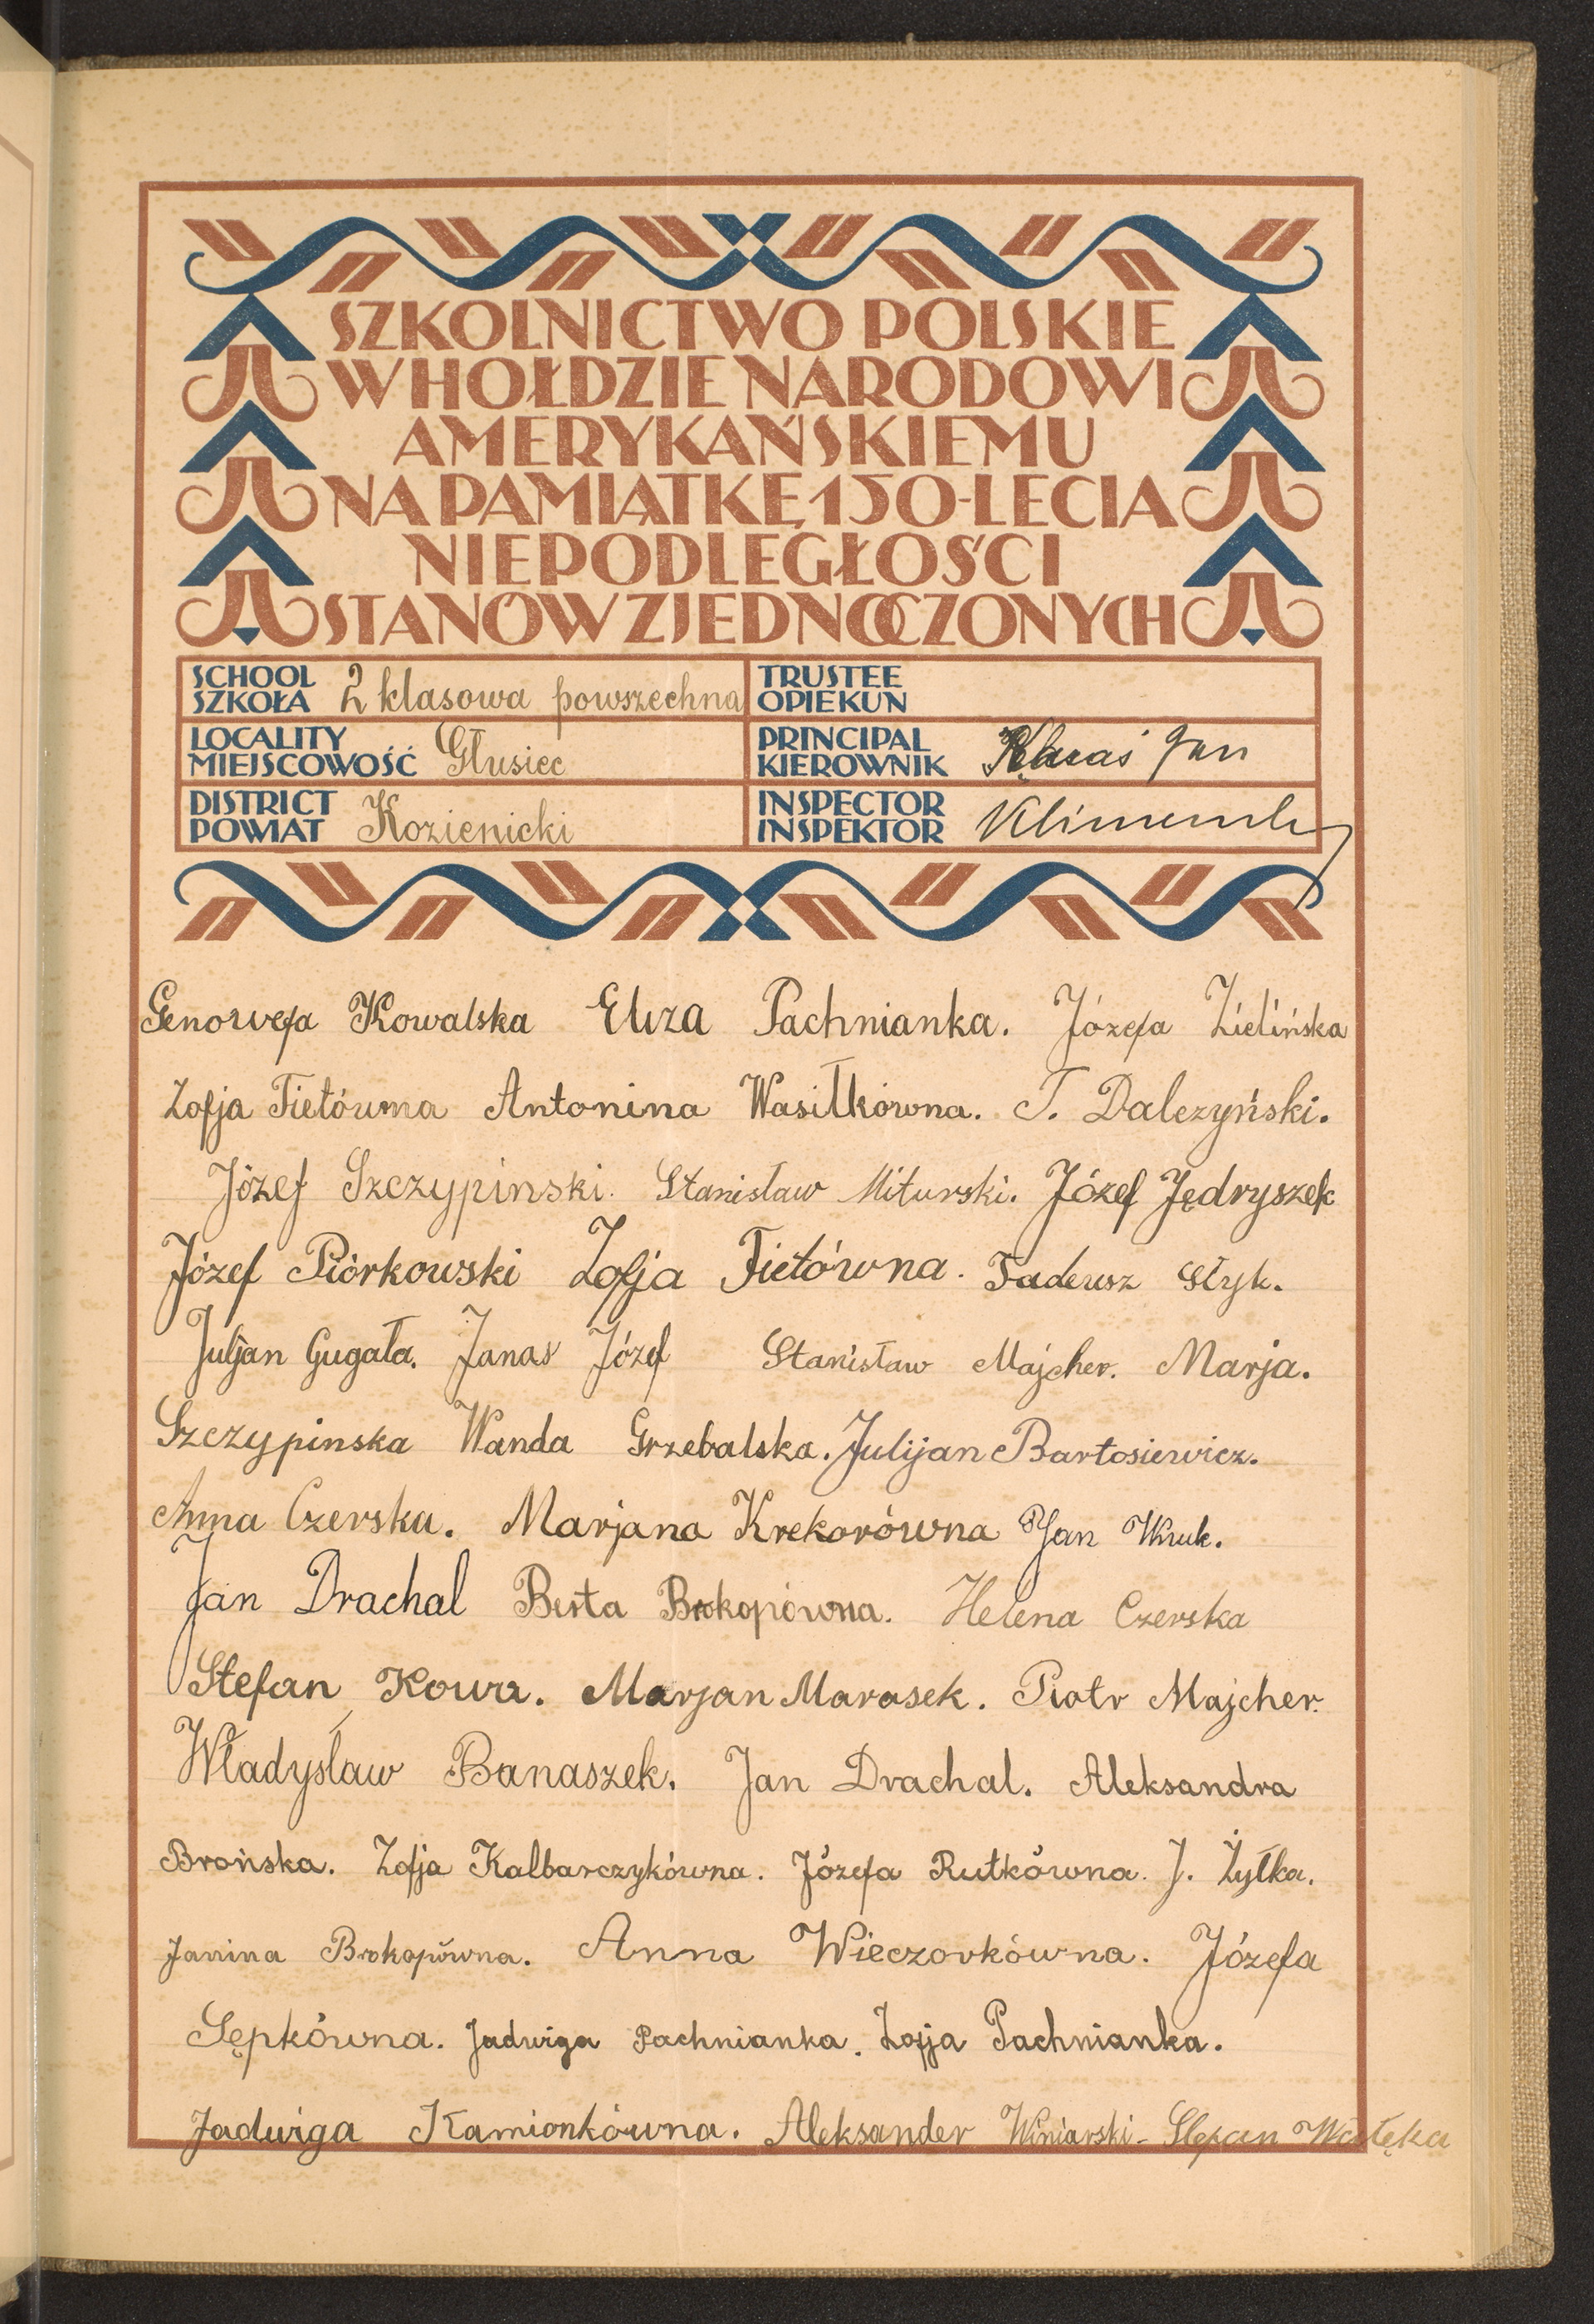 SZKOLNICTWO POLSKIE
W HOŁDZIE NARODOWI
AMERYKAŃSKIEMU
NA PAMIĄTKĘ 150-LECIA
NIEPODLEGŁOŚCI
STANÓW ZJEDNOCZONYCH
SCHOOL
SZKOŁA 2 klasowa powszechna
TRUSTEE
OPIEKUN
LOCALITY
MIEJSCOWOŚĆ Głusiec
PRINCIPAL
KIEROWNIK Jan
DISTRICT
POWIAT Kozienicki
INSPECTOR
INSPEKTOR
Genowefa Kowalska Eliza Pachnianka. Józefa Zielińska
Zofja Fietówna Antonina Wasilkówna. T. Dalczyński.
Józef Szczypinski. Stanisław Miturski. Józef Jędryszek
Józef Piórkowski Zofja Fietówna. Tadeusz Styk.
Juljan Gugała. Janas Józef Stanisław Majcher. Marja.
Szczypinska Wanda Grzebalska. Julijan Bartosiewicz.
Anna Czerska. Marjana Krekorówna Jan Wruk.
Jan Drachal Berta Brokopówna. Helena Czerska
Stefan Kowa. Marjan Marasek. Piotr Majcher.
Władysław Banaszek. Jan Drachal. Aleksandra
Brońska. Zofja Kalbarczykówna. Józefa Rutkówna. J. Żyłka.
Janina Brokopówna. Anna Wieczorkówna. Józefa
Sępkówna. Jadwiga Pachnianka. Zofja Pachnianka.
Jadwiga Kamionkówna. Aleksander Winiarski- Stefan Wałęka